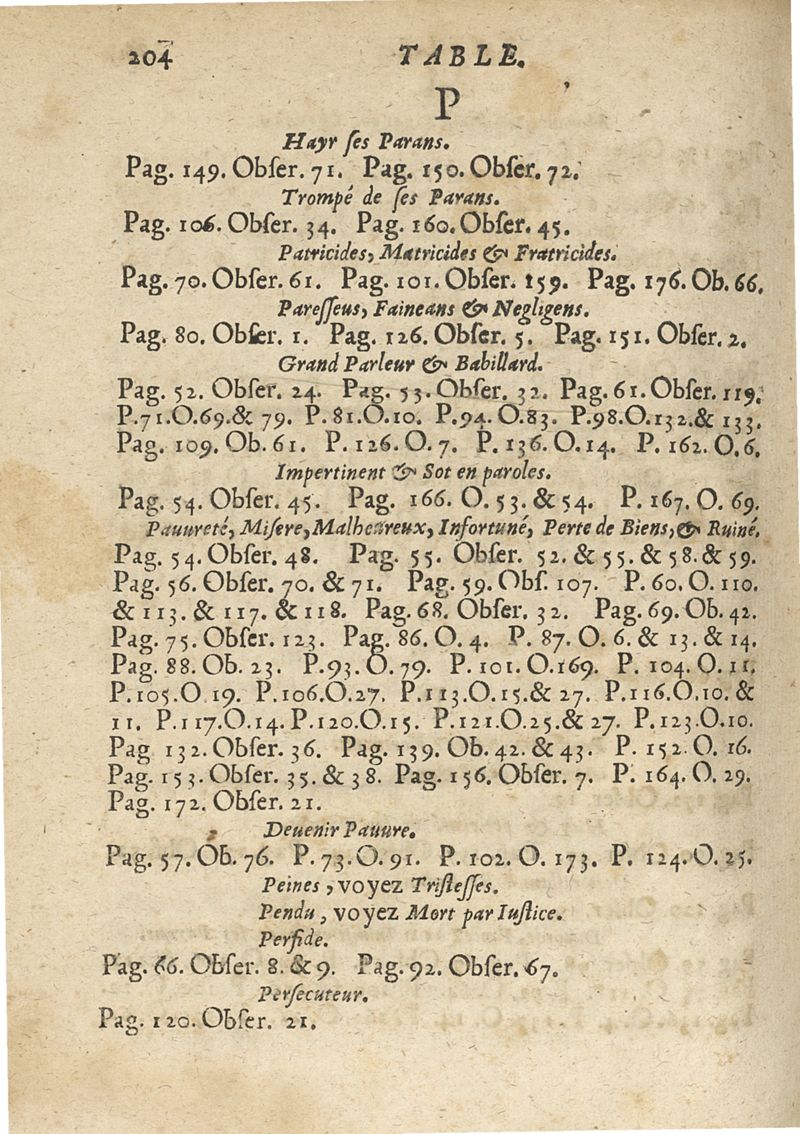 204 TABLE.
P
Hayr ſes Parans.
Pag. 149. Obſer. 71. Pag. 150. Obſer. 72.
Trompé de ſes Parans.
Pag. 106. Obſer. 34. Pag. 160. Obſer. 45.
Patricides, Matricides & Fratricides.
Pag. 70. Obſer. 61. Pag. 101. Obſer. 159. Pag. 176. Ob. 66.
Pareſſeus, Faineans & Negligens.
Pag. 80. Obſer. 1. Pag. 126. Obſer. 5. Pag. 151. Obſer. 2.
Grand Parleur & Babillard.
Pag. 52. Obſer. 24. Pag. 53. Obſer. 32. Pag. 61. Obſer. 119.
P.71.O.69.& 79. P.81.O.10. P.94. O.83. P.98.O.132.& 133.
Pag. 109. Ob. 61. P. 126. O. 7. P. 136. O. 14. P. 162. O. 6.
Impertinent & Sot en paroles.
Pag. 54. Obſer. 45. Pag. 166. O. 53. & 54. P. 167. O. 69.
Pauureté, Miſere, Malheureux, Infortuné, Perte de Biens, & Ruiné.
Pag. 54. Obſer. 48. Pag. 55. Obſer. 52. & 55. & 58. & 59.
Pag. 56. Obſer. 70. & 71. Pag. 59. Obſ. 107. P. 60. O. 110.
& 113. & 117. & 118. Pag. 68. Obſer. 32. Pag. 69. Ob. 42.
Pag. 75. Obſer. 123. Pag. 86. O. 4. P. 87. O. 6. & 13. & 14.
Pag. 88. Ob. 23. P.93. O. 79. P. 101. O.169. P. 104. O. 11.
P.105.O 19. P.106.O.27. P.113.O.15.& 27. P.116.O.10. &
11. P.117.O.14. P.120.O.15. P.121.O.25.& 27. P.123.O.10.
Pag 132. Obſer. 36. Pag. 139. Ob. 42. & 43. P. 152 O. 16.
Pag. 153. Obſer. 35. & 38. Pag. 156. Obſer. 7. P. 164. O. 29.
Pag. 172. Obſer. 21.
Deuenir Pauure.
Pag. 57. Ob. 76. P. 73. O. 91. P. 102. O. 173. P. 124. O. 25.
Peines, voyez Triſteſſes.
Pendu, voyez Mort par Iuſtice.
Perfide.
Pag. 66. Obſer. 8. & 9. Pag. 92. Obſer. 67.
Perſecuteur.
Pag. 120. Obſer. 21.